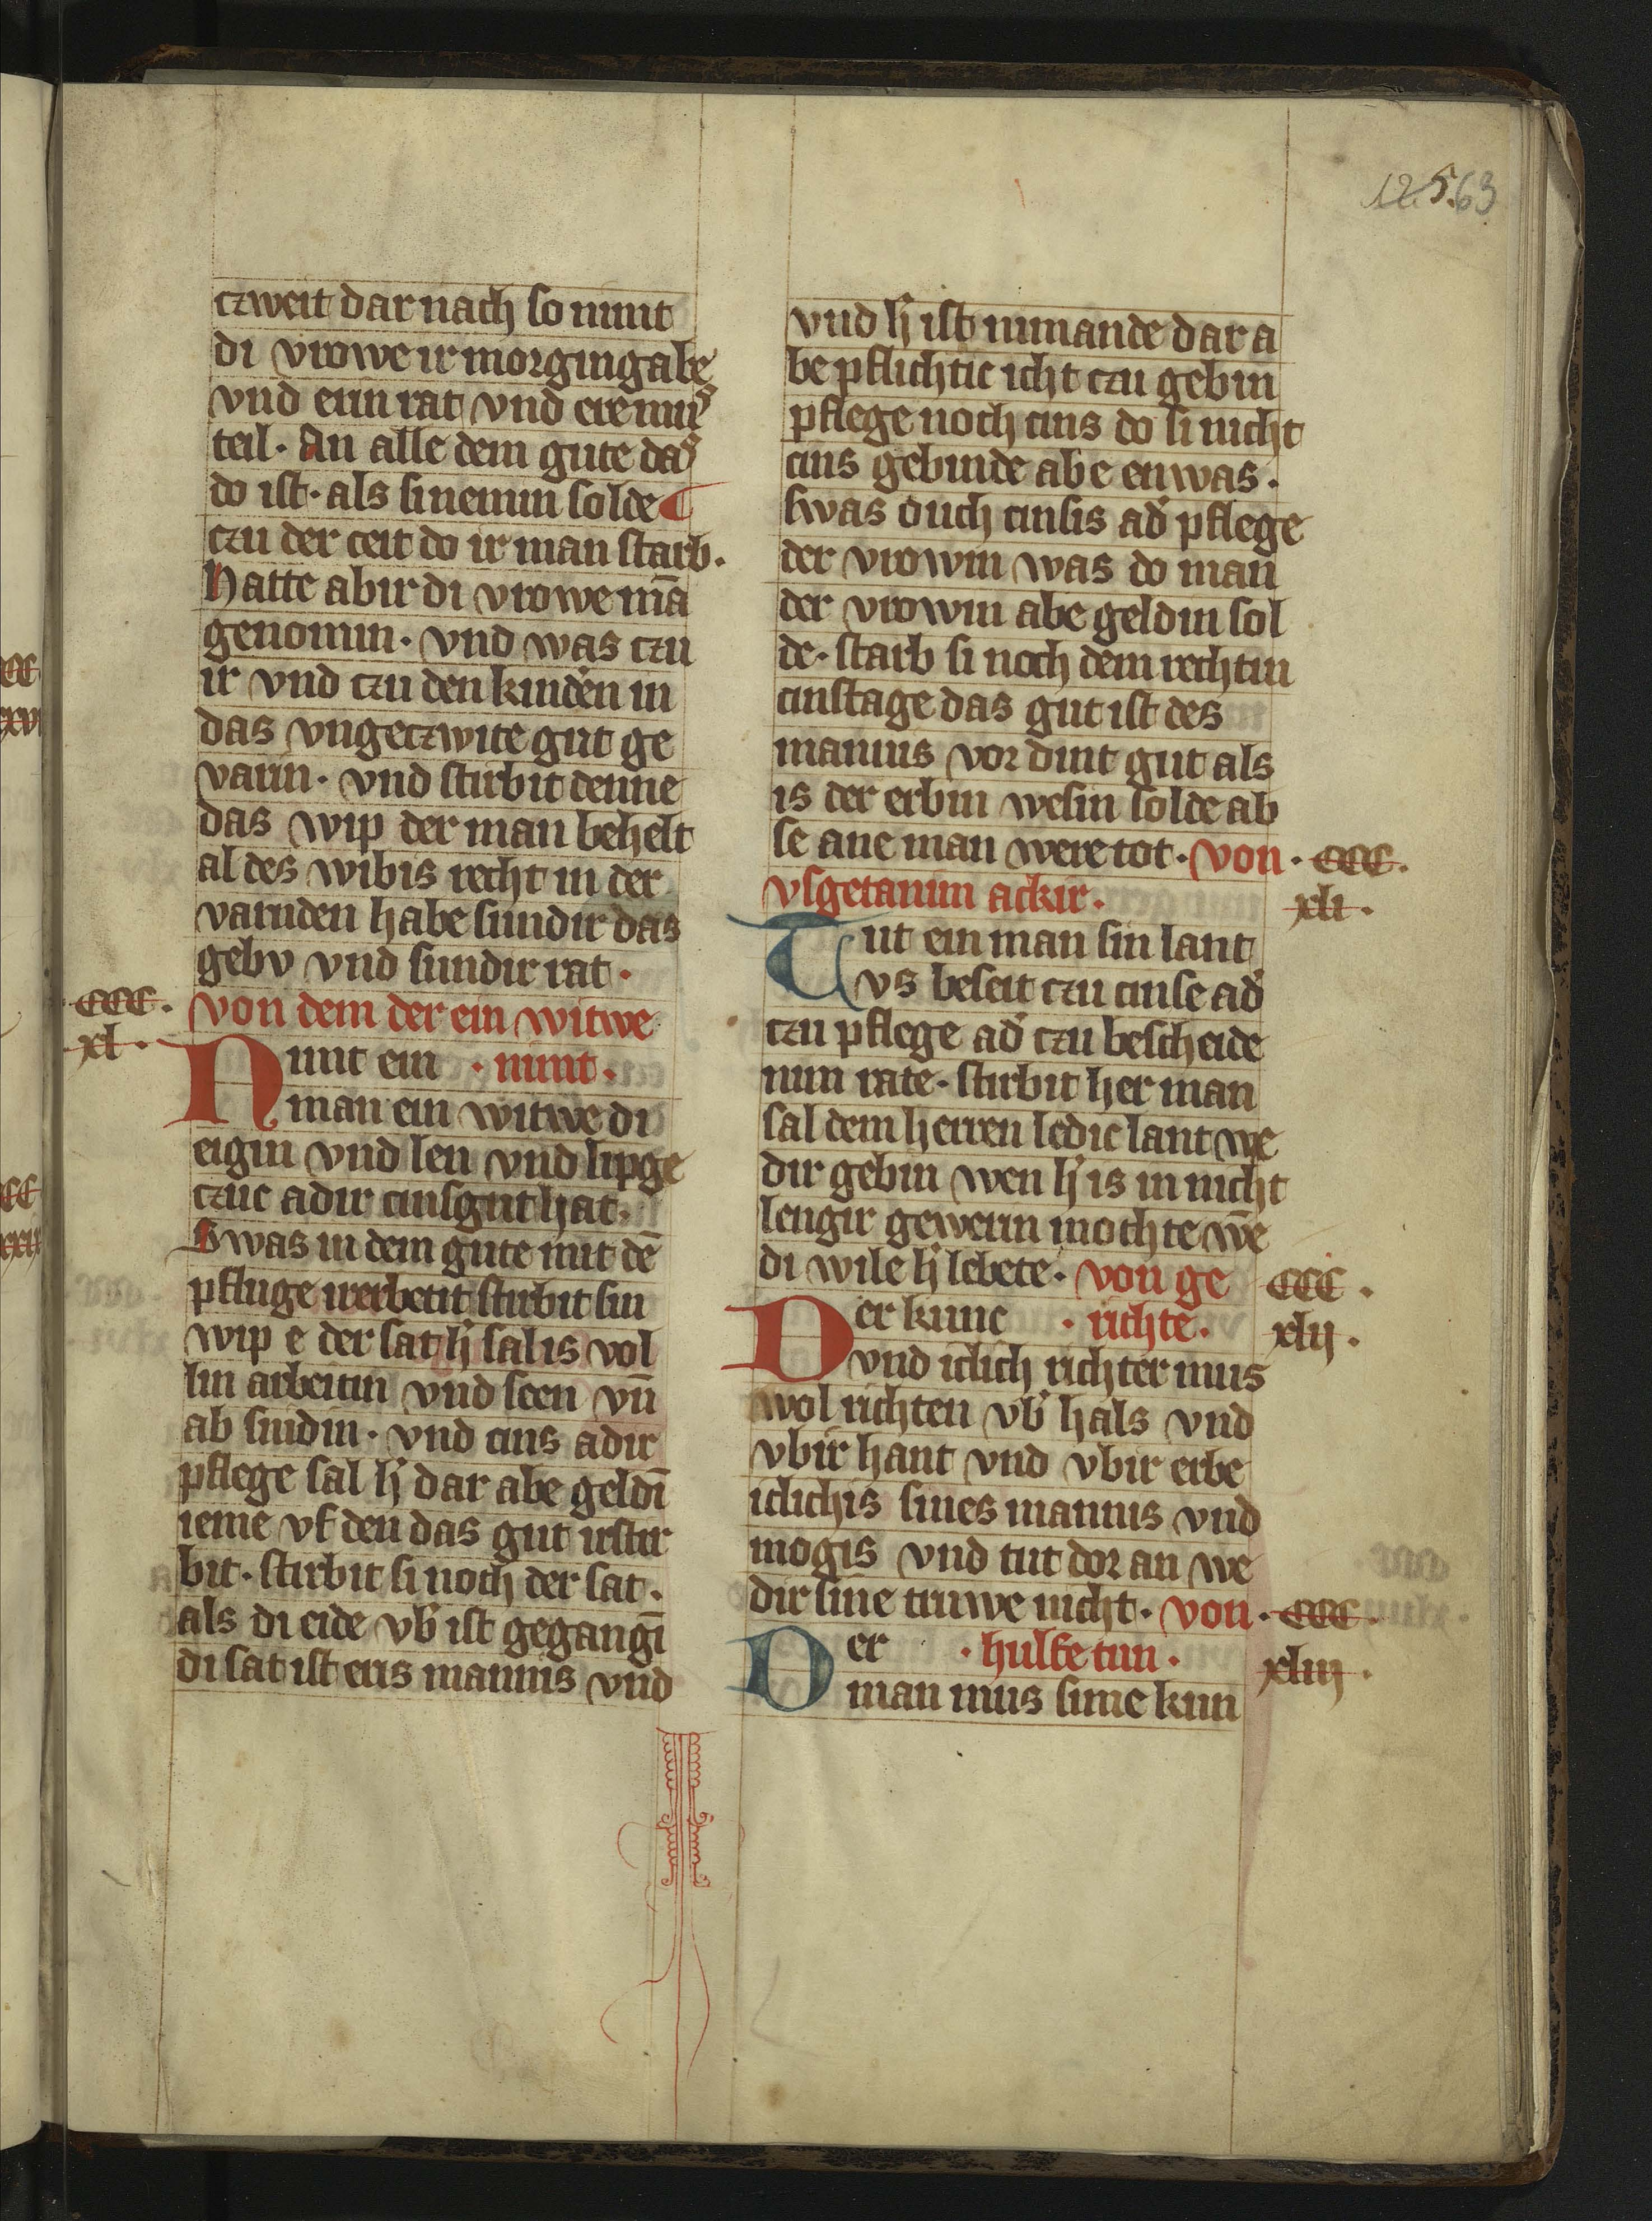 12563
czweit dar nach so nimt
di vrowe ir morgingabe
vnd erin rat vnd ere mus
teil. An alle dem gute das
do ist. als si nemin solde
czu der ceit do ir man starb.
Hatte abir di vrowe mā
genomin. vnd was czu
ir vnd czu den kinden in
das vngeczwite gut ge
varin. vnd stirbit denne
das wip der man behelt
al des wibis recht in der
varnden habe sundir das
gebv vnd sundir rat.
.ccc. von dem der ein witwe
xl. Nimt ein . nimt.
man ein witwe di
eigin vnd len vnd lipge
czuc adir cinsgut hat.
Swas in dem gute mit dē
pfluge irerbetit stirbit sin
wip e der sat h' sal is vol
lin arbeitin vnd seen vn̄
ab snidin. vnd cins adir
pflege sal h' dar abe geldī
ieme vf den das gut irstir
bit. stirbit si noch der sat.
als di eide vb' ist gegangī
di sat ist eris mannis vnd
vnd h' ist nimande dar a
be pflichtic icht czu gebin
pflege noch cins do si nicht
cins gebinde abe enwas.
swas ouch cinsis ad' pflege
der vrowin was do man
der vrowin abe geldin sol
de. starb si noch dem rechtin
cinstage das gut ist des
mannis vor dint gut als
is der erbin wesin solde ab
se ane man were tot. von . ccc.
vsgetanim ackir. xli.
Tut ein man sin lant
vs beseit czu cinse ad'
czu pflege ad' czu bescheide
nim rate. stirbit her man
sal dem herren ledic lant we
dir gebin wen h' is in nicht
lengir gewerin mochte wē
di wile h' lebete. von ge ccc.
Der kunc . richte. xlij.
vnd iclich richter mus
wol richten vb' hals vnd
vbir hant vnd vbir erbe
iclichis sines mannis vnd
mogis vnd tut dor an we
dir sine truwe nicht. von . ccc.
Der . hulfe tun. xliij.
man mus sime kun